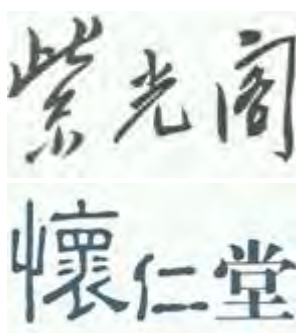 紫光阁
懷仁堂